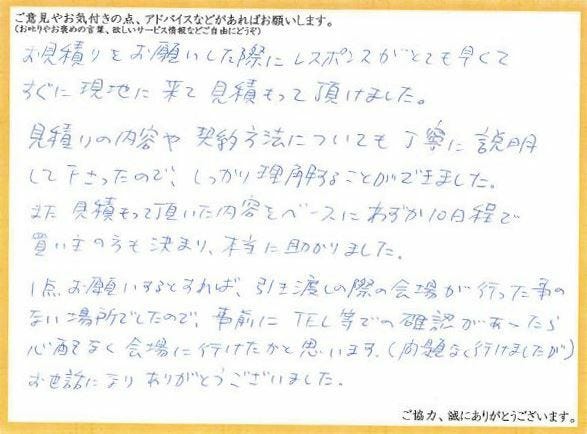 ご意見やお気付きの点、アドバイスなどがあればお願いします。
(お叱りやお褒めの言葉、欲しいサービス情報などご自由にどうぞ)
お見積りをお願いした際にレスポンスがとても早くて
すぐに現地に来て見積もって頂けました。
見積りの内容や契約方法についても丁寧に説明
して下さったので、しっかり理解することができました。
また見積もって頂いた内容をベースにわずか10日程で
買い主の方も決まり、本当に助かりました。
1点お願いするとすれば、引き渡しの際の会場が行った事の
ない場所でしたので、事前にTEL等での確認があったら
心配なく会場に行けたかと思います。(問題なく行けましたが)
お世話になりありがとうございました。
ご協力、誠にありがとうございます。